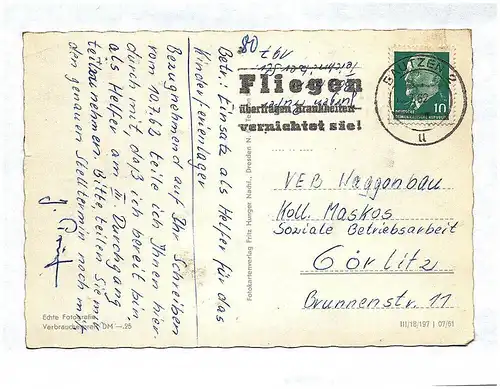 Betr.: Einsatz als Helfer für das
Kinderferienlager
Bezugnehmend auf Ihr Schreiben
vom 10.7.62 teile ich Ihnen hier-
durch mit, daß ich bereit bin
als Helfer am II. Durchgang
teilzunehmen. Bitte, teilen Sie mir
den genauen Stelltermin noch mit.
Echte Fotografie
Verbraucherpreis DM -.25
Fotokartenverlag Fritz Hunger Nachf., Dresden N
80
Fliegen
übertragen Krankheiten
vernichtet sie!
BAUTZEN 2
u
10
VEB Waggonbau
Koll. Maskos
Soziale Betriebsarbeit
Görlitz
Brunnenstr. 11
III/18/197 | 07/61